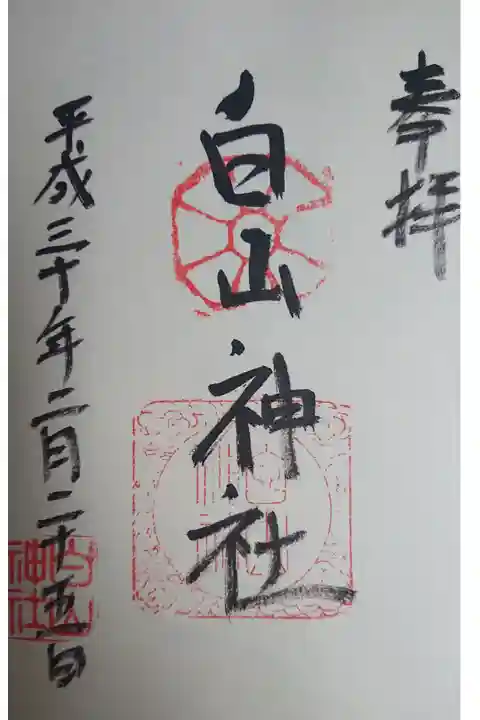 奉拝
白山神社
平成三十年二月二十五日
白山
神社